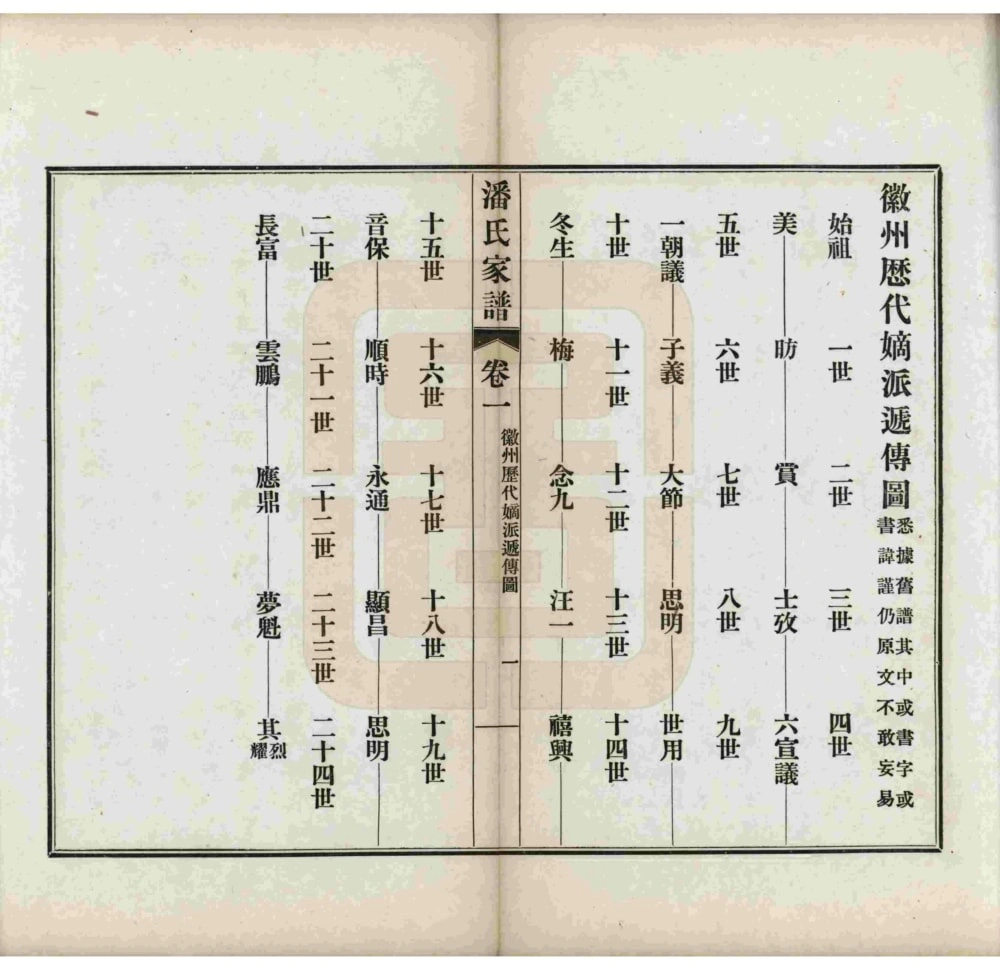 徽州歷代嫡派遞傳圖
悉據舊譜其中或書字或
書諱謹仍原文不敢妄易
始祖 一世 二世 三世 四世
美 昉 賞 士攷 六宣議
五世 六世 七世 八世 九世
一朝議 子義 大節 思明 世用
十世 十一世 十二世 十三世 十四世
冬生 梅 念九 汪一 禧興
潘氏家譜 卷一 徽州歷代嫡派遞傳圖 一
十五世 十六世 十七世 十八世 十九世
音保 順時 永通 顯昌 思明
二十世 二十一世 二十二世 二十三世 二十四世
長富 雲鵬 應鼎 夢魁 其烈耀